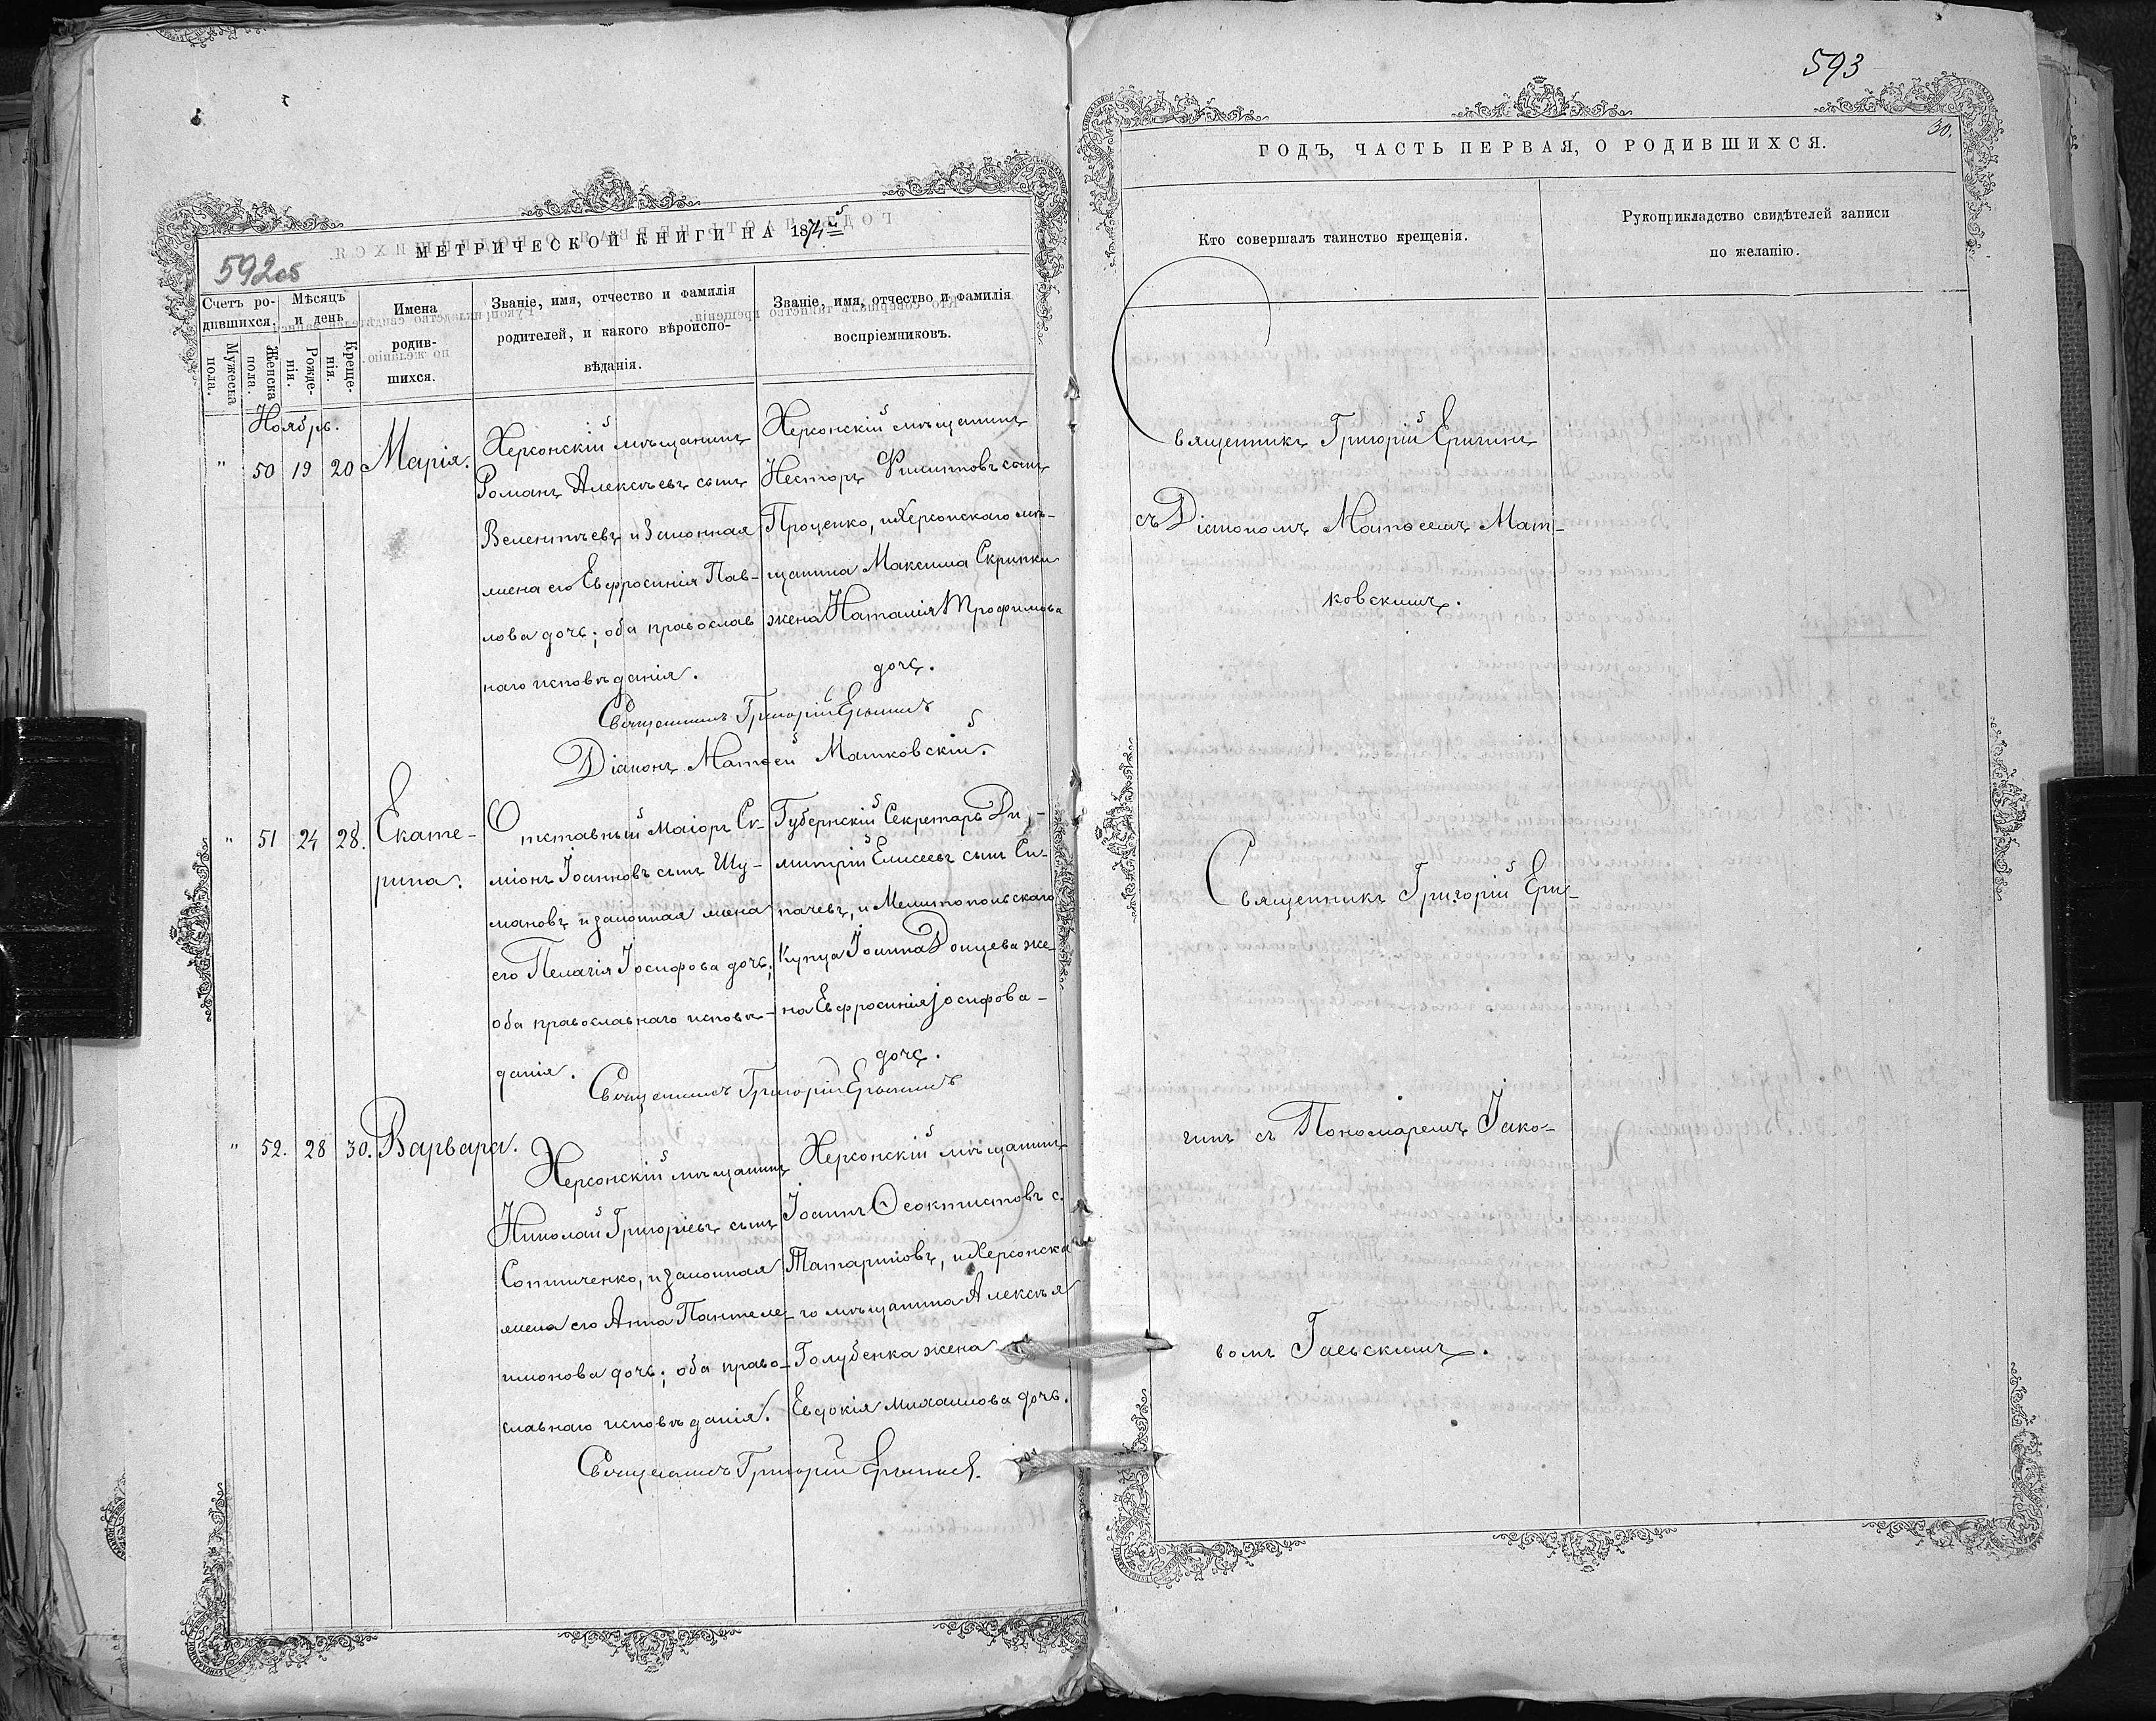 592об
МЕТРИЧЕСКОЙ КНИГИ НА 1874й
Счетъ ро-
дившихся.
Мужеска
пола.
Женска
пола.
Мѣсяцъ
и день
Рожде-
нія.
Креще-
нія.
Имена
родив-
шихся.
Званіе, имя, отчество и фамилія
родителей, и какого вѣроиспо-
вѣданія.
Званіе, имя, отчество и фамилія
воспріемниковъ.
Ноябрь.
" 50 19 20 Марія.
Херсонскій мѣщанинъ
Романъ Алексѣевъ сынъ
и Законная
жена его Евфросинія Пав-
лова дочь; оба православ
наго исповѣданія.
Херсонскій мѣщанинъ
Несторъ Филиповъ сынъ
Проценко, и Херсонскаго мѣ-
щанина Максима Скрипки
жена Наталія Трофимова
дочь.
Священникъ Григорій
Діаконъ Матѳей Матковскій.
" 51 24 28. Екате-
рина.
Отставный Маіоръ Си-
міонъ Іоанновъ сынъ Шу-
мановъ и законная жена
его Пелагія Іосифова дочь;
оба православнаго исповѣ-
данія.
Губернскій Секретарь Ди-
митрій Елисеевъ сынъ Си-
пачевъ, и Мелитопольскаго
Купца Іоанна Донцева же-
на Евфросинія Іосифова-
дочь.
Священникъ Григорій
" 52. 28 30. Варвара.
Херсонскій мѣщанинъ
Николай Григоріевъ сынъ
Сотниченко, и законная
жена его Анна Пантеле-
имонова дочь; оба право-
славнаго исповѣданія.
Херсонскій мѣщанинъ
Іоаннъ Ѳеоктистовъ с.
Татариновъ, и Херсонска
го мѣщанина Алексѣя
Голубенка жена
Евдокія Михаилова дочь.
Священникъ Григорій
593
30.
ГОДЪ, ЧАСТЬ ПЕРВАЯ, О РОДИВШИХСЯ.
Кто совершалъ таинство крещенія.
Рукоприкладство свидѣтелей записи
по желанію.
Священникъ Григорій Еригинъ
съ Діакономъ Матѳеемъ Мат-
ковскимъ.
Священникъ Григорій Ери-
гинъ съ Пономаремъ Іако-
вомъ Гаевскимъ.